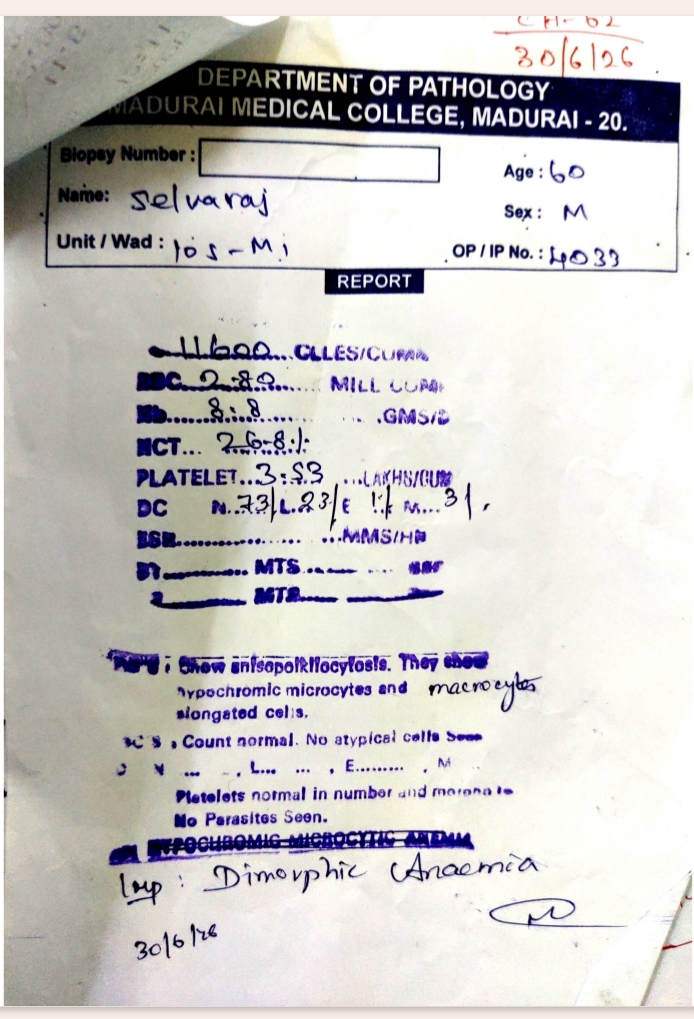 CH-62
30/6/26
DEPARTMENT OF PATHOLOGY
MADURAI MEDICAL COLLEGE, MADURAI - 20.
Biopsy Number :
Age : 60
Name: Selvaraj
Sex : M
Unit / Wad :
OP / IP No. : 4033
REPORT
11600 CLLES/CUMM
RBC 2.80 MILL CUMM
Hb 8.8 GMS/
HCT... 26.8%
PLATELET..3.53 ...LAKHS/CUM
DC N..73/L..23/E 1/ M...3/.
ESR ...MMS/HR
BT MTS
MTS
: Show anisopoikilocytosis. They show
hypochromic microcytes and macrocytes
elongated cells.
Count normal. No atypical cells Seen
N ... , L... ... , E......... , M
Platelets normal in number and
No Parasites Seen.
HYPOCHROMIC MICROCYTIC ANEMIA
Imp : Dimorphic Anaemia
30/6/26